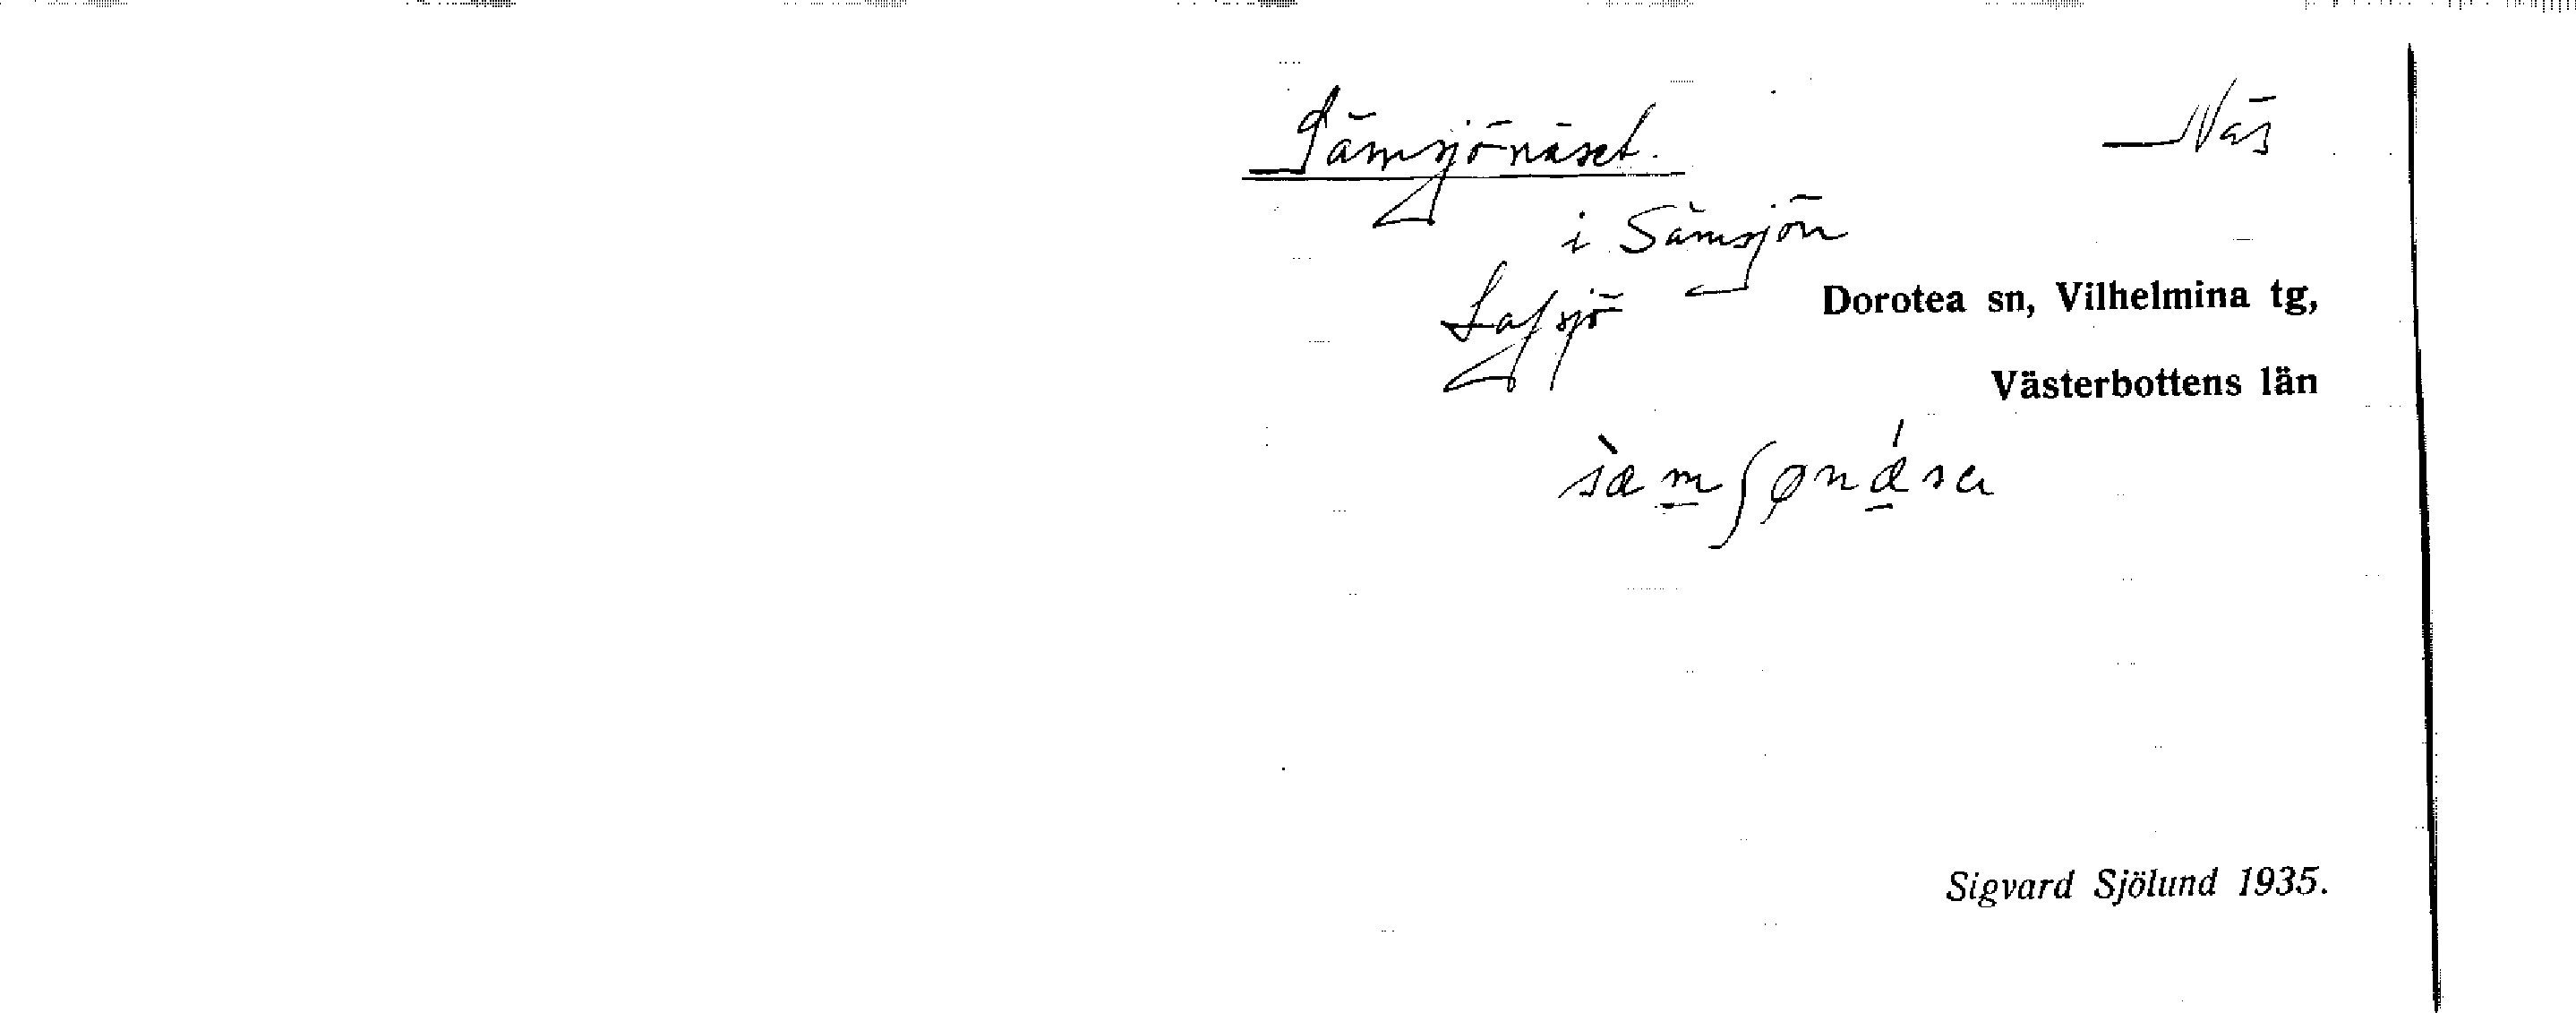 Sämsjönäset. Näs
i Sämsjön
Lafsjö Dorotea sn, Vilhelmina tg,
Västerbottens län
sæmʃønǽsa
Sigvard Sjölund 1935.